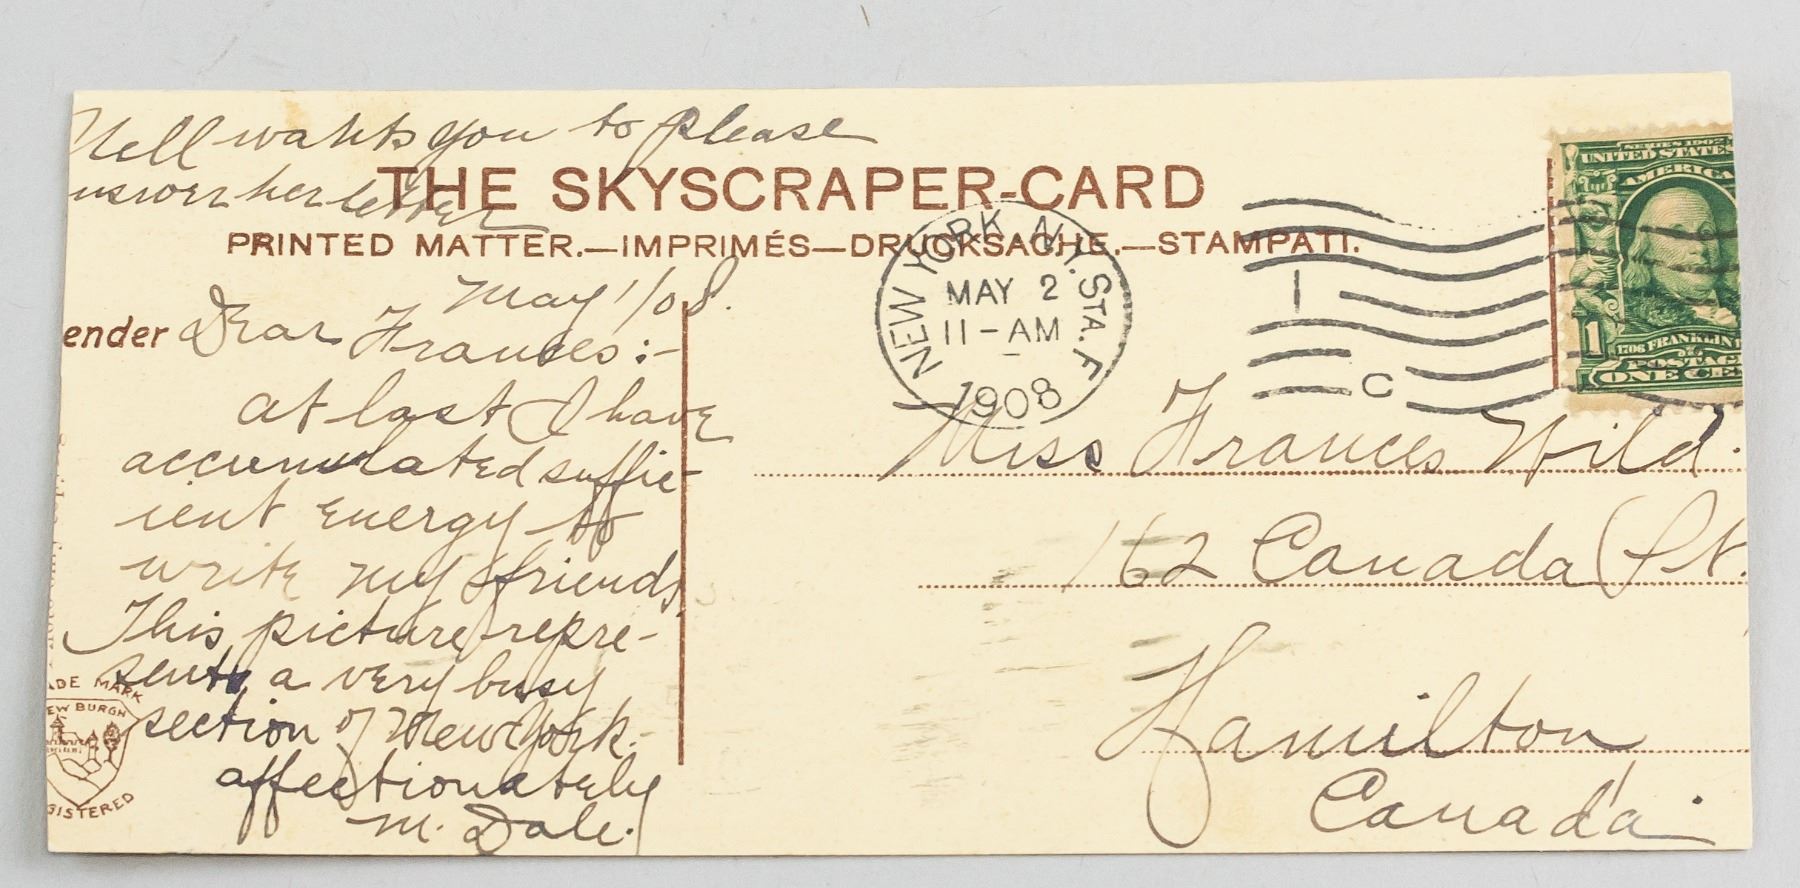 Nell wants you to please
nswer her letter
THE SKYSCRAPER-CARD
PRINTED MATTER.—IMPRIMÉS—DRUCKSACHE.—STAMPATI.
May 1/08.
ender
Dear Frances:-
At last I have
accumulated suffic-
ient energy to
write my friends.
This picture repre-
sents a very busy
section of New York.
affectionately
M. Dale.
ADE MARK
EW BURGH
GISTERED
NEW YORK, N.Y. STA. F
MAY 2
11-AM
1908
1
C
SERIES 1902
UNITED STATES
AMERICA
1
1706 FRANKLIN 1
POSTAG
ONE CE
Miss Frances Wild.
162 Canada St.
Hamilton
Canada.